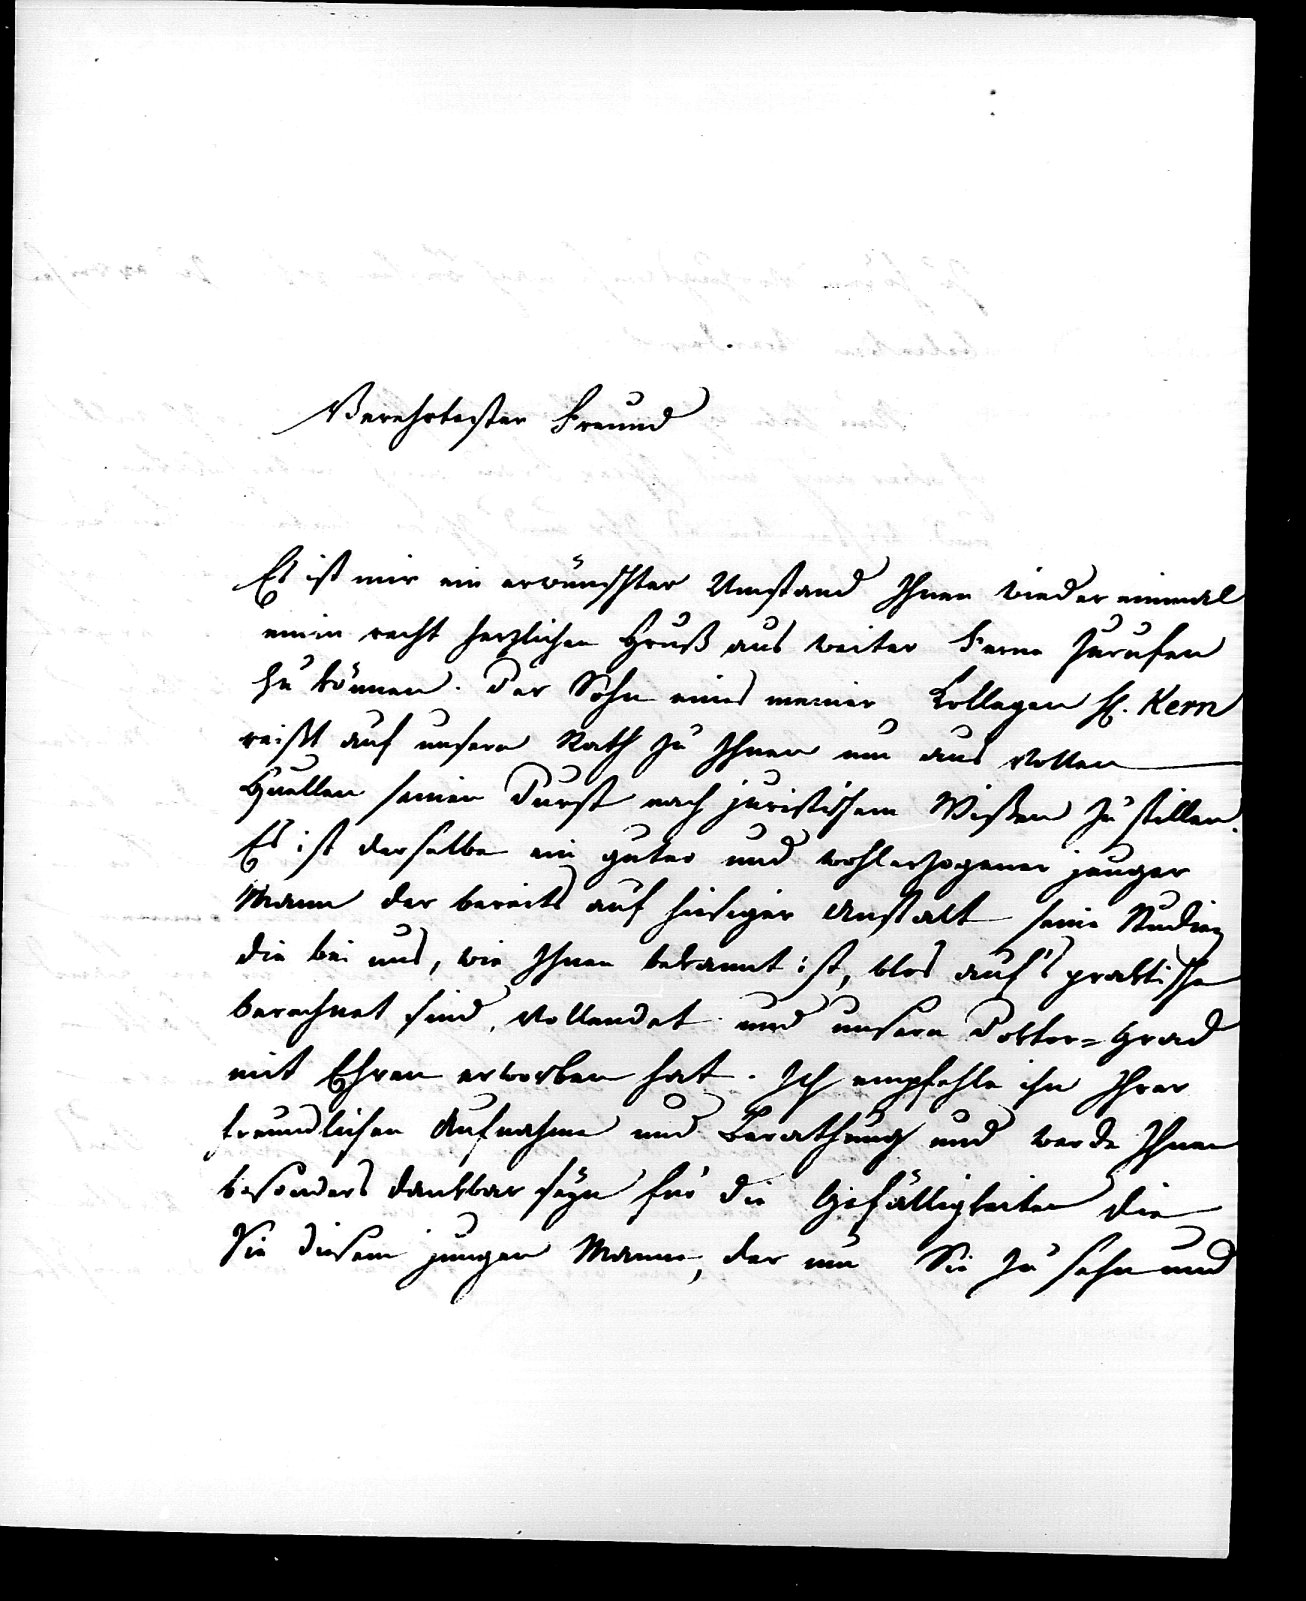 Verehrtester Freund
Es ist mir ein erwünschter Umstand Ihnen wieder einmal
einen recht herzlichen Gruß aus weiter Ferne zurufen
zu können. Der Sohn eines meiner Kollegen H. Kern
reißt auf unsern Rath zu Ihnen um aus vollen
Quellen seinen Durst nach juristischem Wißen zu stillen.
Es ist derselbe ein guter und wohlerzogener junger
Mann der bereits auf hiesiger Anstalt seine Studien
die bei uns, wie Ihnen bekannt ist, blos auf's praktische
berechnet sind, vollendet und unsern Doktor=Grad
mit Ehren erworben hat. Ich empfehle ihn Ihrer
freundlichen Aufnahme und Berathung und werde Ihnen
besonders dankbar seyn für die Gefälligkeiten die
Sie diesem jungen Manne, der nun Sie zu sehn und